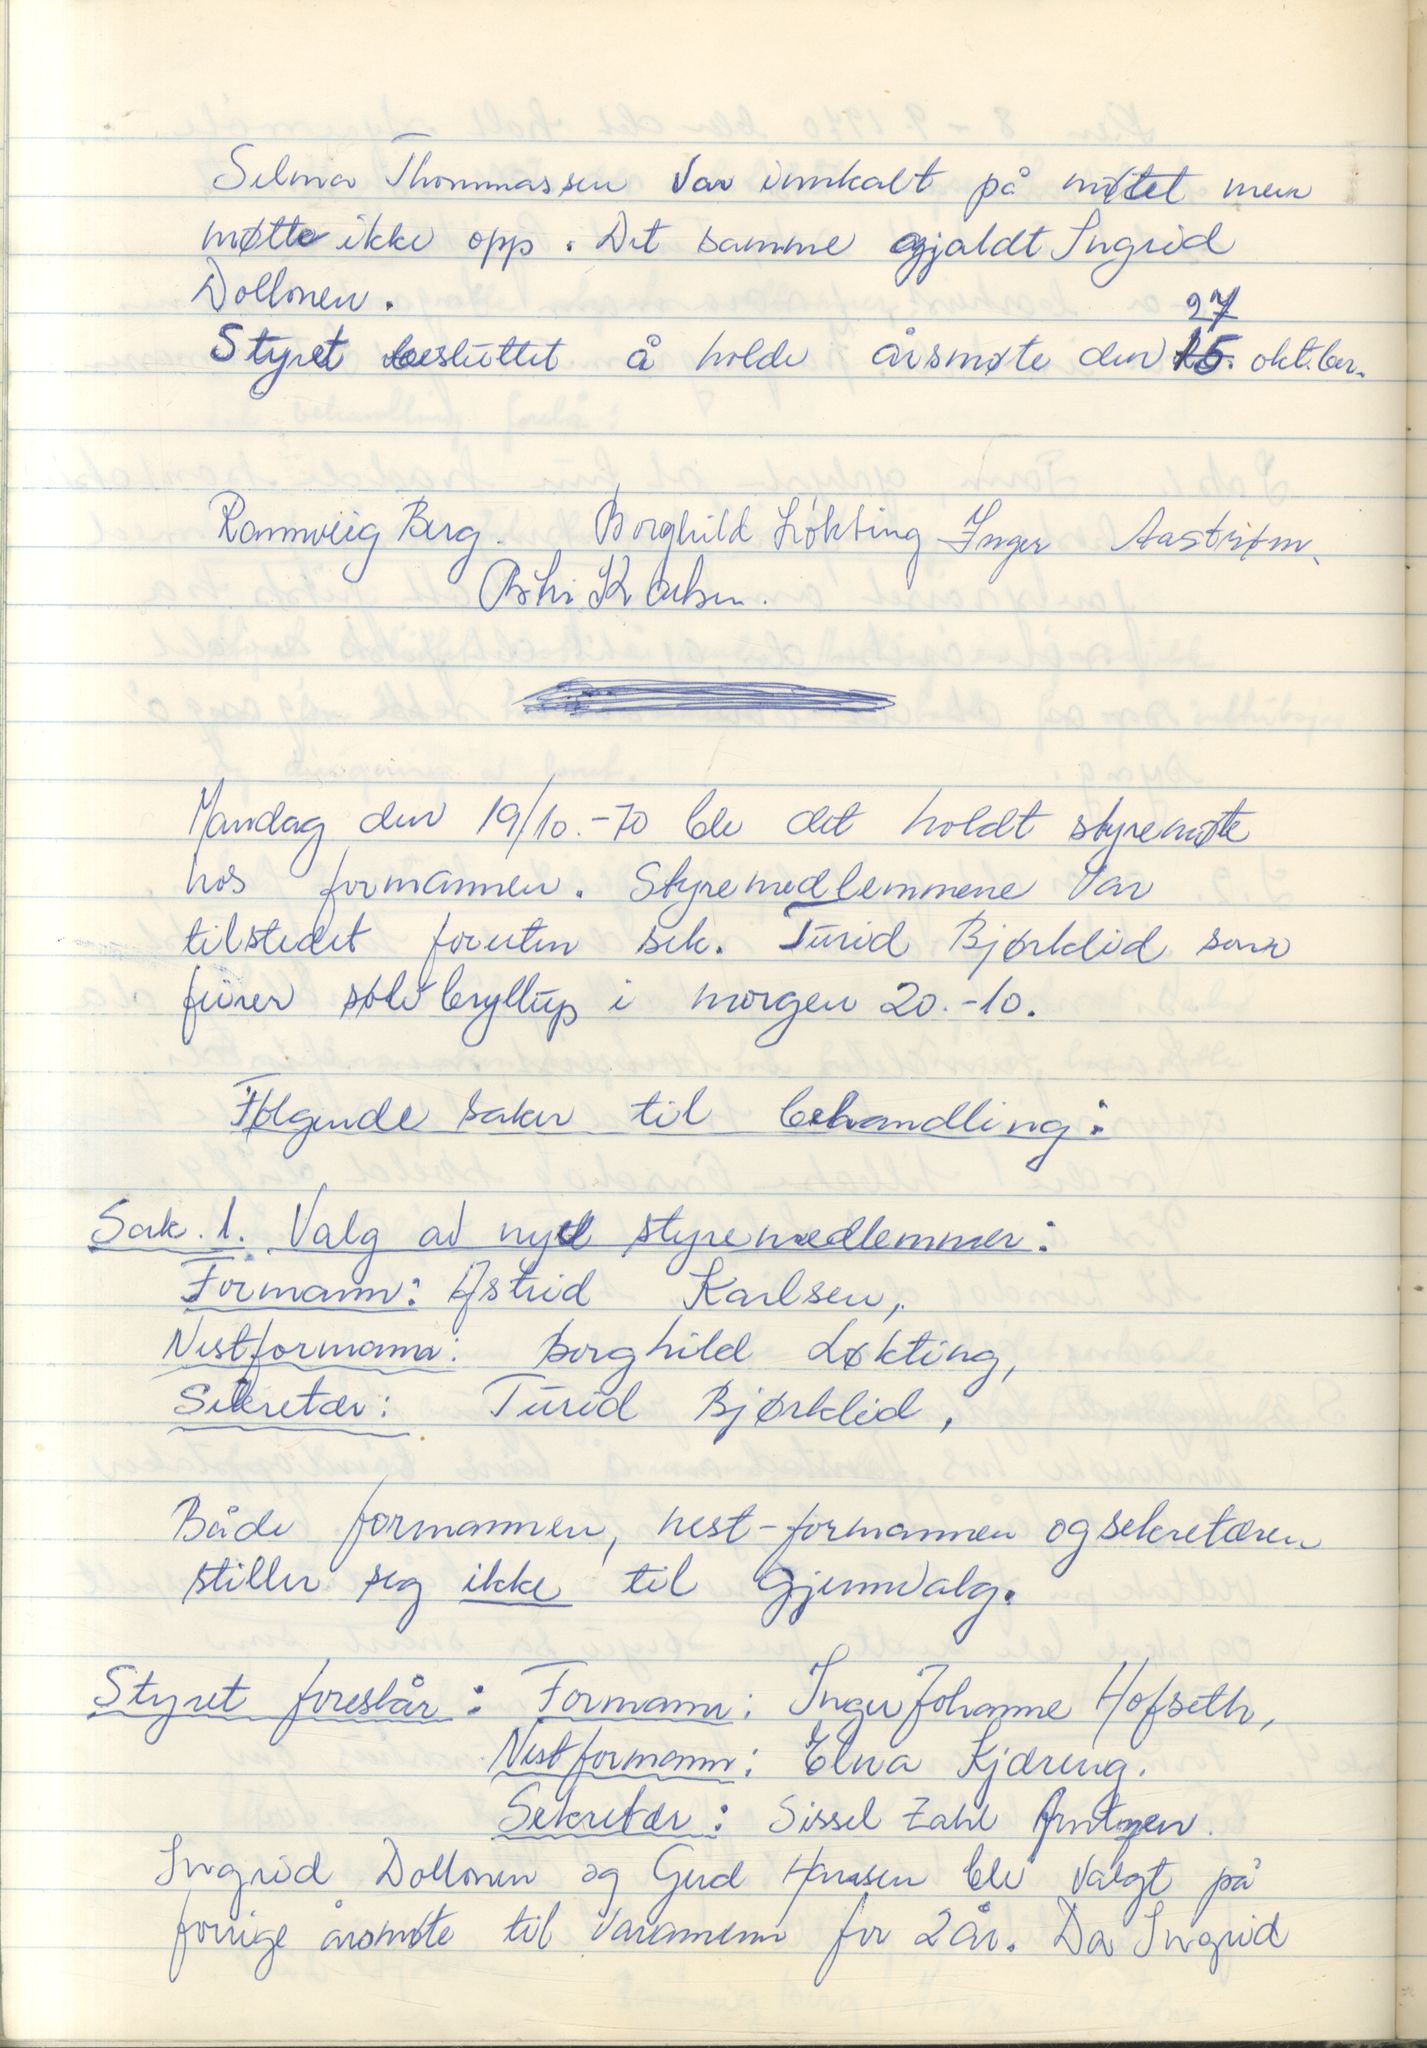 Selma Thommassen var innkalt på møtet men
møtte ikke opp. Det samme gjaldt Ingrid
Dollonen.
27
Styret besluttet å holde årsmøte den 15. okt.ber.
Rannveig Berg. Borghild Løkting Inger Aastrøm.
Karlsen.
Mandag den 19/10.-70 ble det holdt styremøte
hos formannen. Styremedlemmene var
tilstedet foruten sek. Turid Bjørklid som
feirer sølvbryllup i morgen 20.-10.
Følgende saker til behandling:
Sak. 1. Valg av nye styremedlemmer:
Formann: Astrid Karlsen,
Nestformann: Borghild Løkting,
Sekretær: Turid Bjørklid,
Både formannen, nest-formannen og sekretæren
stiller seg ikke til gjennvalg.
Styret foreslår: Formann: Inger Johanne Hofseth,
Nestformann: Elna Kjæreng.
Sekretær: Sissel Zahl Arntzen.
Ingrid Dollonen og Gerd Hansen ble valgt på
forrige årsmøte til varamenn for 2 år. Da Ingrid